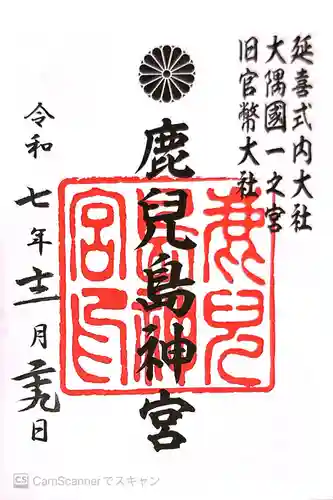 延喜式内大社
大隅國一之宮
旧官幣大社
鹿兒島神宮
鹿兒島神宮印
令和七年十二月二十九日
CS CamScannerでスキャン